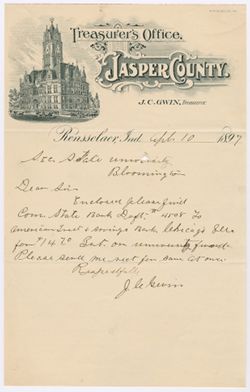 Treasurer's Office,
JASPER COUNTY.
J. C. GWIN, Treasurer.
Rensselaer, Ind. Sept. 10 1897
Sec State University
Bloomington
Dear Sir
Enclosed please find
Com. State Bank Dft # 4508 to
American Trust & Savings Bank Chicago Ills
for $14 70 Int. on university fund
Please send me rect for same at once
Respectfully
J. C. Gwin